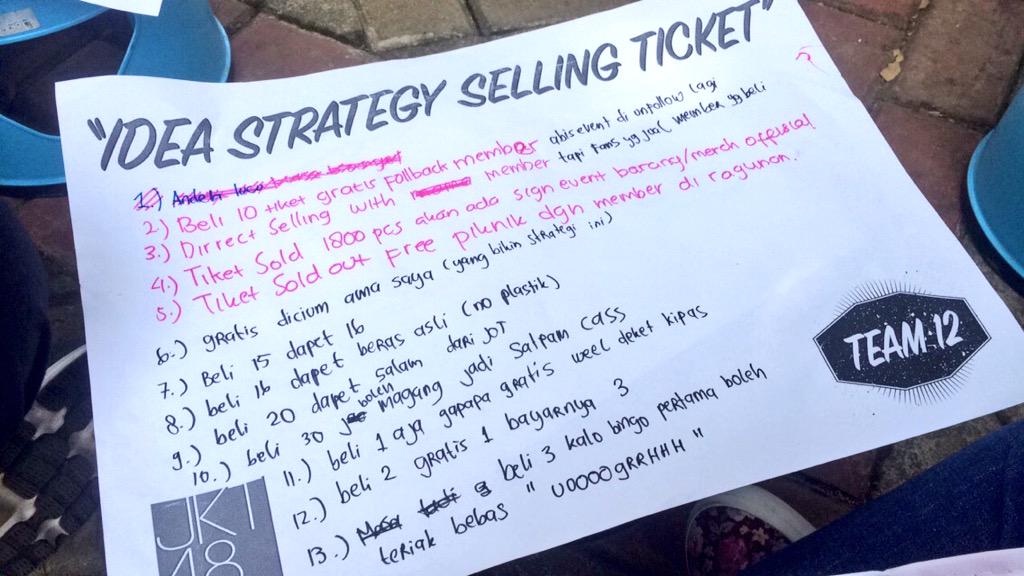 "IDEA STRATEGY SELLING TICKET"
1.)
2.) Beli 10 tiket gratis Follback member abis event di unfollow lagi
3.) Dirrect Selling with member tapi fans yg jual member yg beli
4.) Tiket Sold 1800 pcs akan ada sign event barang/merch official
5.) Tiket Sold out Free piknik dgn member di ragunan.
6.) gratis dicium ama saya (yang bikin strategi ini)
7.) Beli 15 dapet 16
8.) beli 16 dapet beras asli (no plastik)
9.) beli 20 dapet salam dari JOT
10.) beli 30 boleh magang jadi Satpam Cass
11.) beli 1 aja gapapa gratis weel deket kipas
12.) beli 2 gratis 1 bayarnya 3
13.) beli 3 kalo bingo pertama boleh
teriak bebas "UOOOOgRRHHH"
TEAM 12
JKT
48